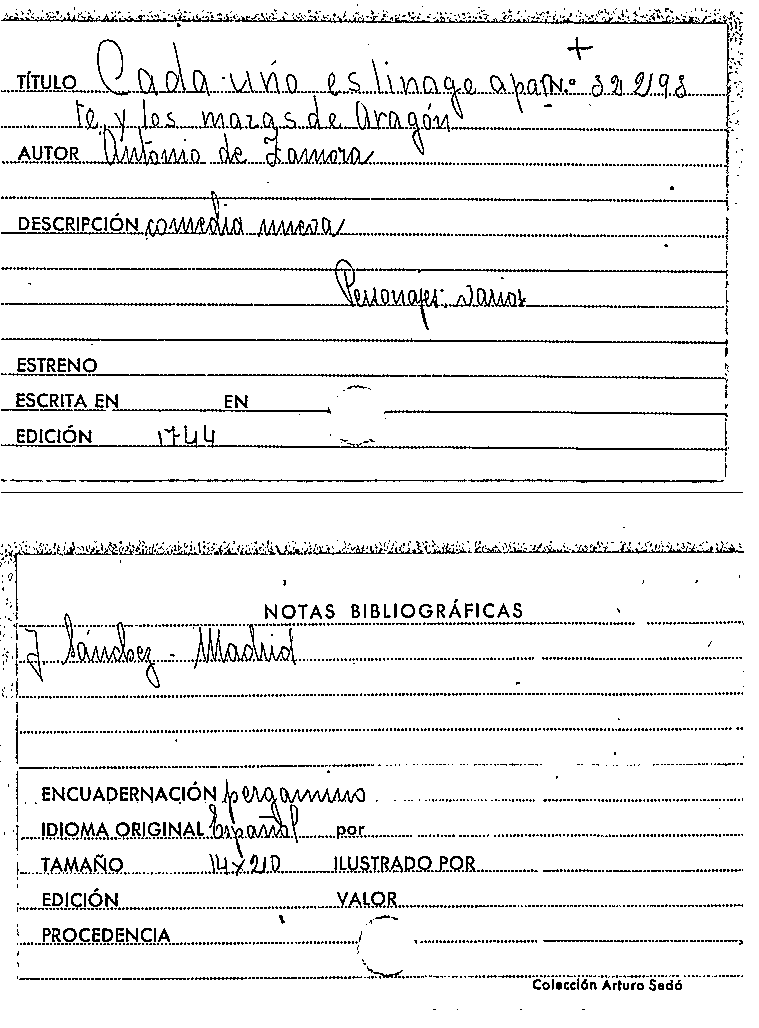 +
TÍTULO Cada uno es linage apar N.º 322198
te, y los mazas de Aragón
AUTOR Antonio de Zamora
DESCRIPCIÓN comedia nueva
Personajes: varios
ESTRENO
ESCRITA EN EN
EDICIÓN 1744
NOTAS BIBLIOGRÁFICAS
J Sánchez - Madrid
ENCUADERNACIÓN pergamino
IDIOMA ORIGINAL Español por
TAMAÑO 14x210 ILUSTRADO POR
EDICIÓN VALOR
PROCEDENCIA
Colección Arturo Sedó